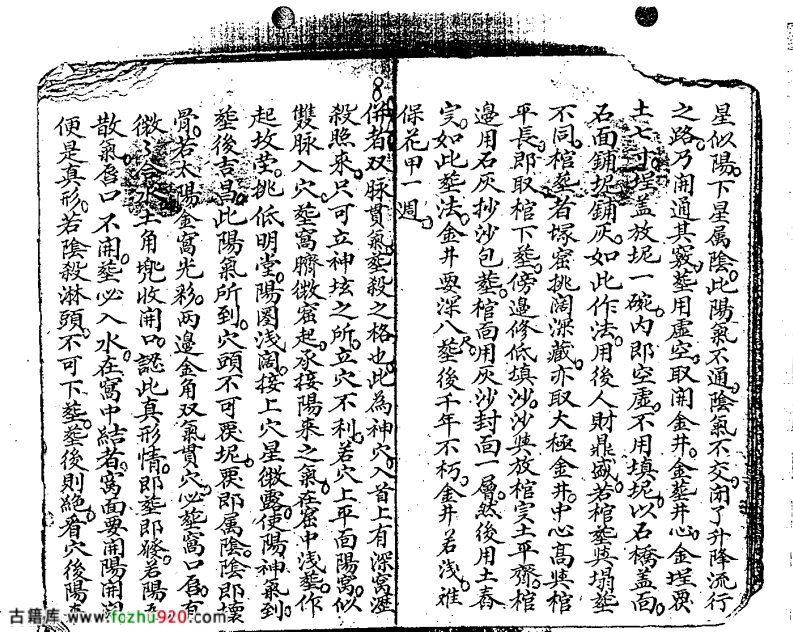 星似陽下星属陰此陽氣不通陰氣不交閉了升降流行
之路乃開通其竅塟用虛空取開金井金塟井心金埋要
土七寸埋盖放坭一碗内即空虛不用填坭以石橋盖面
石面鋪坭鋪灰如此作法用後人財鼎盛若棺塟與塌塟
不同棺塟若塚窑挑闊深藏亦取大極金井中心高與棺
平長郎取棺下塟傍邊修低填沙沙與放棺实土平齊棺
邊用石灰抄沙包塟棺面用灰沙封面一層然後用土舂
完如此塟法金井要深八尺塟後千年不朽金井若浅难
保花甲一週
8
併者双脉貫氣塟殺之格也此為神穴入首上有深窩溼
殺照來只可立神坛之所立穴不利若穴上平面陽窩似
雙脉入穴塟窩臍微窑起承接陽來之氣在窑中浅塟作
起坟茔挑低明堂陽圏浅阔接上穴星微露使陽神氣到
塟後吉昌此陽氣所到穴頭不可要坭要即属陰陰即壊
骨若太陽金窩光彩两邊金角双氣貫穴必塟窩口唇
微合水土角兠收開口認此真形情即塟即發若陽
散氣唇口不開塟必入水在窩中結者窩面要開陽開
便是真形若陰殺淋頭不可下塟塟後則絶看穴後陽
古籍库 www.fozhu920.com